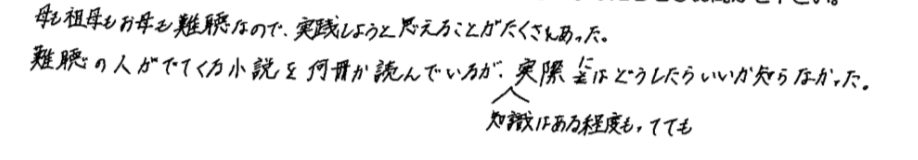 母も祖母もお母も難聴なので、実践しようと思えることがたくさんあった。
難聴の人がでてくる小説を何冊か読んでいるが、実際にはどうしたらいいか知らなかった。
知識はある程度もってても